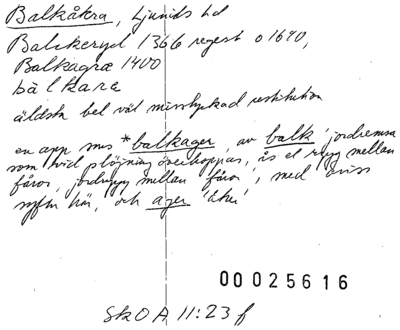 Balkåkra, Ljunits hd
Balekeryd 1366 regest o 1690,
Balkagræ 1400
bàlkara
äldsta bel väl misslyckad restitution
en app mos *balkager, av balk 'jordremsa
som vid plöjning överhoppas, ås el rygg mellan
fåror, jordrygg mellan fåror', med
syftn här, och ager 'åker'
00025616
SkOA 11:23 f